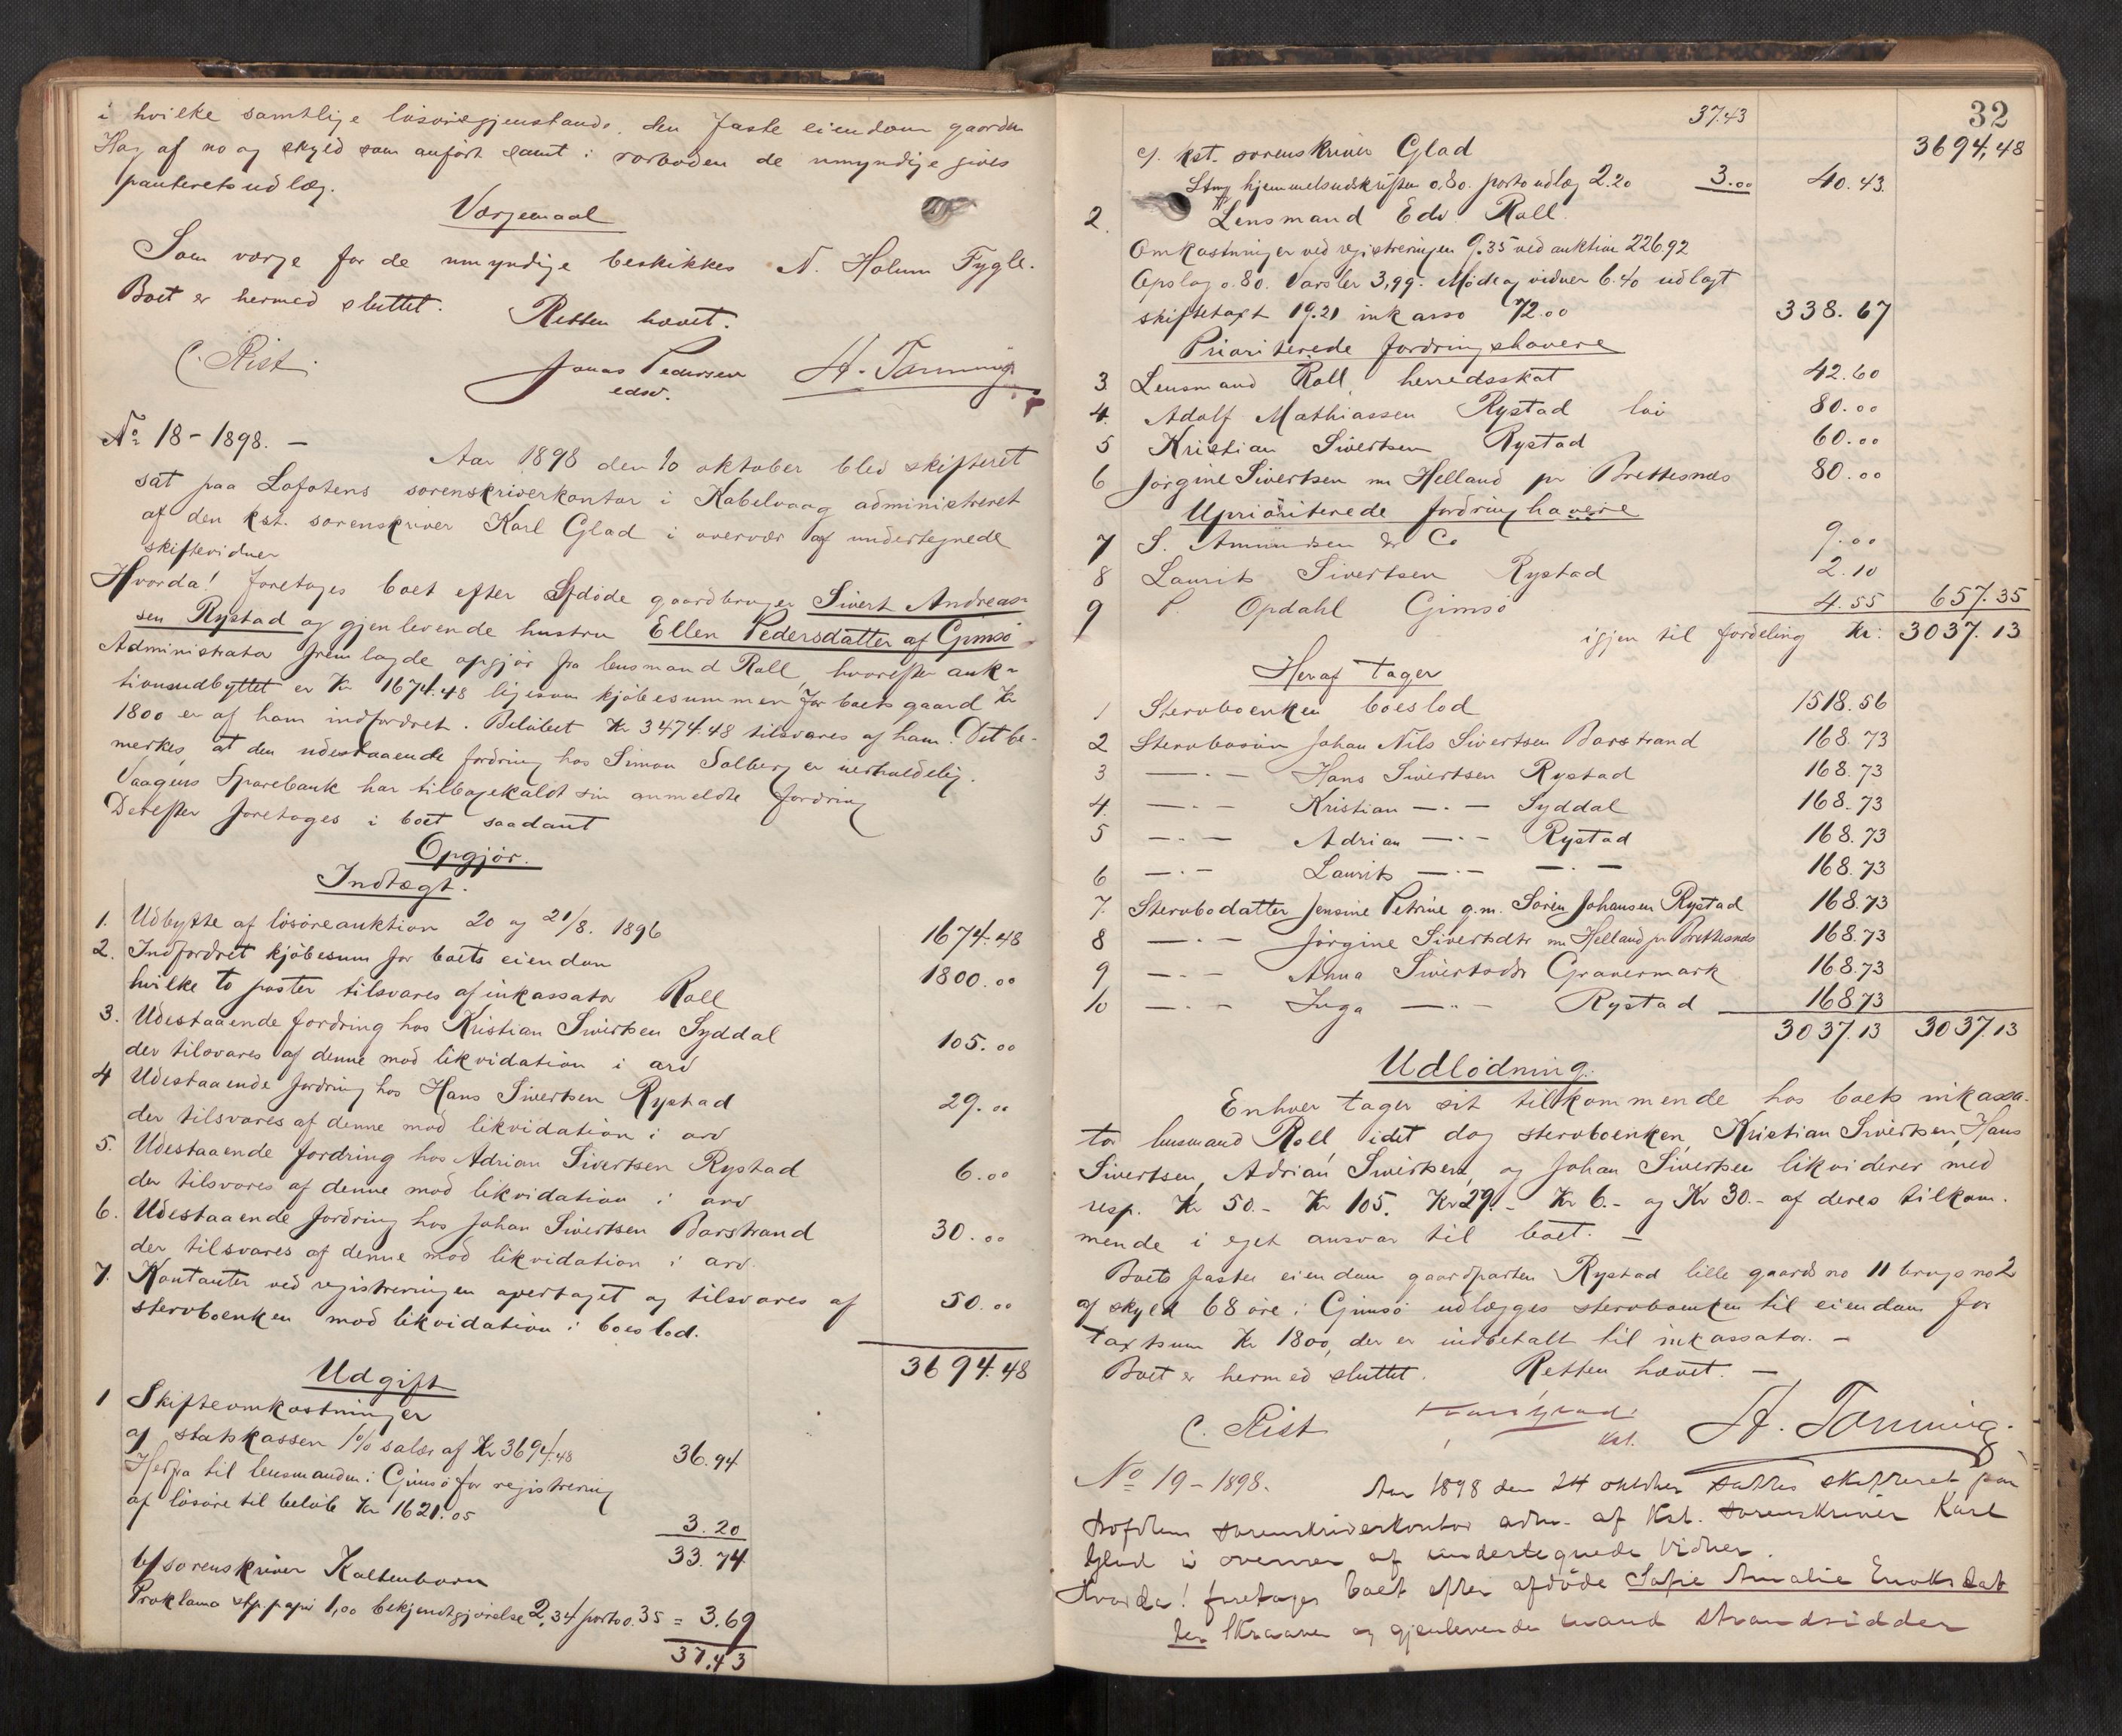 i hvilke samtlige løsøregjenstande, den faste eiendom gaarden
Hag af no og skyld som anført samt i rorboden de umyndige gives
panteretsudlæg.
Værgemaal
Som værge for de umyndige beskikkes N. Holum Fygle.
Boet er hermed sluttet. Retten hævet.
C. Rist. Jonas Pedersen H. Tønning
edsv.
No 18-1898. –
Aar 1898 den 10 oktober blev skifteret
sat paa Lofotens sorenskriverkontor i Kabelvaag administreret
af den kst. sorenskriver Karl Glad i overvær af undertegnede
skiftevidner
Hvorda! foretoges boet efter afdøde gaardbruger Sivert Andreas-
sen Rystad og gjenlevende hustru Ellen Pedersdatter af Gimsø
Administrator fremlagde opgjør fra lensmand Roll, hvorefter auk-
tionsudbyttet er Kr 1674.48 ligesom kjøbesummen for boets gaard Kr
1800 er af ham indfordret. Beløbet Kr 3474.48 tilsvares af ham. Det be-
merkes, at den udestaaende fordring hos Simon Solberg er uerholdelig.
Vaagens Sparebank har tilbagekaldt sin anmeldte fordring
Derefter foretoges i boet saadant
Opgjør.
Indtægt.
1. Udbytte af løsøreauktion 20 og 21/8. 1896 1674.48
2. Indfordret kjøbesum for boets eiendom
hvilke to poster tilsvares af inkassator Roll 1800.00
3. Udestaaende fordring hos Kristian Sivertsen Syddal
der tilsvares af denne mod likvidation i arv 105.00
4 Udestaaende fordring hos Hans Sivertsen Rystad
der tilsvares af denne mod likvidation i arv 29.00
5. Udestaaende fordring hos Adrian Sivertsen Rystad
der tilsvares af denne mod likvidation i arv 6.00
6. Udestaaende fordring hos Johan Sivertsen Barstrand
der tilsvares af denne mod likvidation i arv. 30.00
7. Kontanter ved registreringen overtaget og tilsvares af
stervboenken mod likvidation i boeslod. 50.00
3694.48
Udgift
1 Skifteomkostninger
a/ statskassen 1% salær af Kr 3694.48 36.94
Herfra til lensmanden i Gimsø for registrering
af løsøre til beløb Kr 1621.05 3.20
33.74
b/ sorenskriver Kaltenborn
Proklama stp. papir 1,00 bekjendtgjørelse 2,34 porto 0.35 = 3.69
37.43
32
37.43 3694,48
c/. kst. sorenskriver Glad
Stmp hjemmelsudskriften 0.80. porto udlæg 2.20 3.00 40.43.
2. Lensmand Edv Roll.
Omkostninger ved registreringen 9.35 ved auktion 226.92
Opslag 0.80. Varsler 3,99. Møde og vidner 6.40 udlagt
skiftetaxt 19.21 inkasso 72.00 338.67
Prioriterede fordringshavere
3 Lensmand Roll, herredsskat 42.60
4. Adolf Mathiassen Rystad løn 80.00
5 Kristian Sivertsen Rystad 60.00
6 Jørgine Sivertsen nu Helland pr Brettesnæs 80.00
Uprioriterede fordringhavere
7 S. Amundsen & Co 9.00
8 Laurits Sivertsen Rystad 2.10
9 P. Opdahl Gimsø 4.55 657.35
igjen til fordeling Kr: 3037.13
Heraf tager
1 Stervboenken boeslod 1518.56
2 Stervbosøn Johan Nils Sivertsen Barstrand 168.73
3 —·— Hans Sivertsen Rystad 168.73
4. —·— Kristian —·— Syddal 168.73
5 —·— Adrian —·— Rystad 168.73
6 —·— Laurits —·— —·— 168.73
7. Stervbodatter Jensine Petrine g.m. Søren Johansen Rystad 168.73
8 —·— Jørgine Sivertsdtr nu Helland pr Brettesnæs 168.73
9 —·— Anna Sivertsdtr Gravermark 168.73
10 —·— Inga —·— Rystad 168.73
3037.13 3037.13
Udlodning.
Enhver tager sit tilkommende hos boets inkassa-
tor lensmand Roll, idet dog stervboenken, Kristian Sivertsen, Hans
Sivertsen, Adrian Sivertsen, og Johan Sivertsen likviderer med
resp. Kr 50.- Kr 105. Kr 29.- Kr 6.- og Kr 30.- af deres tilkom-
mende i eget ansvar til boet. –
Boets faste eiendom gaardparten Rystad lille gaards no 11 brugs no 2
af skyld 68 øre i Gimsø udlægges stervboenken til eiendom for
taxtsum Kr 1800, der er indbetalt til inkassator. –
Boet er hermed sluttet. Retten hævet. –
C. Rist Karl Glad H. Tønning.
kst.
No 19-1898. Aar 1898 den 24 oktober sattes skifteret paa
Lofotens sorenskriverkontor adm. af kst. sorenskriver Karl
Glad i overvær af undertegnede vidner.
Hvorda! foretoges boet efter afdøde Sofie Amalie Enoksdat
ter Skraaven og gjenlevende mand strandsidder